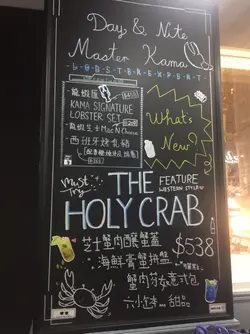 Day & Nite
Master Kama
LOBSTER EXPERT
龍蝦
KAMA SIGNATURE
LOBSTER SET
龍蝦芝士Mac N Cheese
西班牙烤乳豬
What's
New?
Must
Try
THE
FEATURE
WESTERN STYLE
HOLY CRAB
芝士蟹肉釀蟹蓋
$538
海鮮膏蟹拼盤
蟹肉芬意式包
甜品